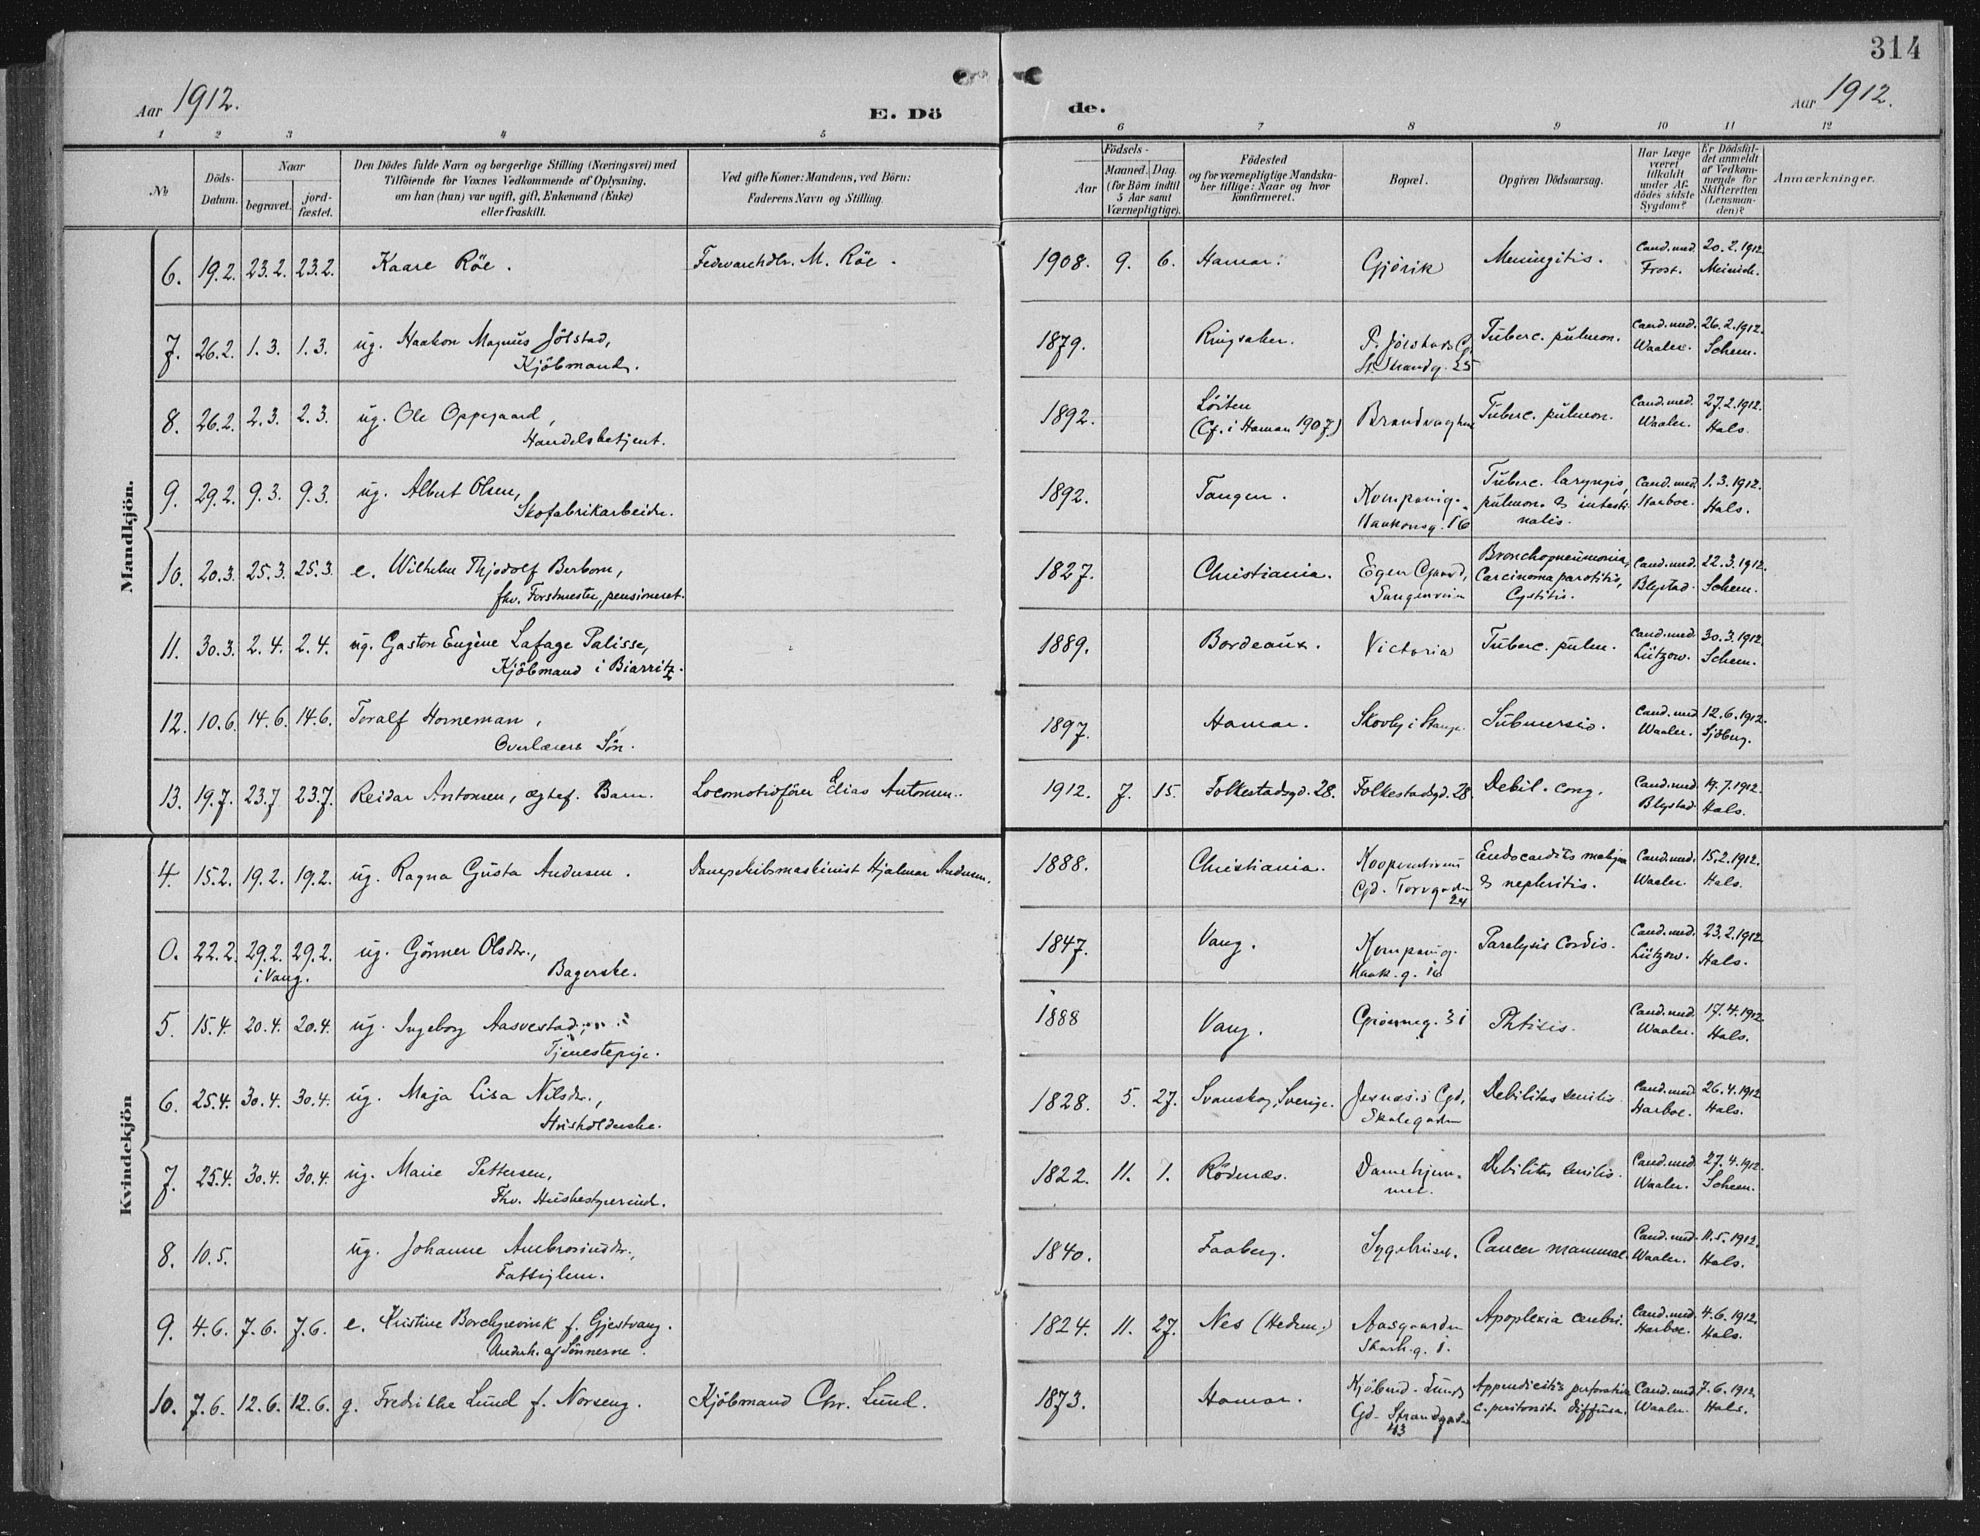 314
Aar 1912.
E. Dö
de.
Aar 1912.
1 2 3 4 5 6 7 8 9 10 11 12
No
Döds-
Datum.
Naar
begravet.
jord-
fæstet.
Den Dödes fulde Navn og borgerlige Stilling (Næringsvei) med
Tilföiende for Voxnes Vedkommende af Oplysning,
om han (hun) var ugift, gift, Enkemand (Enke)
eller fraskilt.
Ved gifte Koner: Mandens, ved Börn:
Faderens Navn og Stilling.
Födsels-
Aar
Maaned. Dag.
(for Börn indtil
5 Aar samt
Værnepligtige).
Födested
og for værnepligtige Mandska-
ber tillige: Naar og hvor
konfirmeret.
Bopæl.
Opgiven Dödsaarsag.
Har Læge
været
tilkaldt
under Af-
dödes sidste
Sygdom?
Er Dödsfal-
det anmeldt
af Vedkom-
mende for
Skifteretten
(Lensman-
den)?
Anmærkninger.
Mandkjön.
6. 19.2. 23.2. 23.2. Kaare Röe. Fedevarehdlr. M. Röe. 1908. 9. 6. Hamar. Gjövik Meningitis. Cand.med. Frost. 20.2.1912
7. 26.2. 1.3. 1.3. ug. Haakon Magnus Jölstad,
Kjöbmand. 1879. Ringsaker. P. Jölstads Gd.
St. Strandg. 25 Tuberc. pulmon. Cand.med. Waaler. 26.2.1912. Scheen.
8. 26.2. 2.3. 2.3. ug. Ole Oppegaard,
Handelsbetjent. 1892. Löiten
(Cf. i Hamar 1907) Tuberc. pulmon. Cand.med. Waaler. 27.2.1912. Hals.
9. 29.2. 9.3. 9.3. ug. Albert Olsen,
Skofabrikarbeider. 1892. Tangen. Kompanig.
Haakonsg. 16 Tuberc. laryngis,
pulmon. & intesti-
nalis. Cand.med. Harboe. 1.3.1912. Hals.
10. 20.3. 25.3. 25.3. e. Wilhelm Thjodolf Berbom,
fhv. Forstmester, pensioneret. 1827. Christiania. Egen Gaard,
Tangenveien Bronchopneumonia,
Carcinoma parotitis,
Cystitis. Cand.med. Blystad. 22.3.1912. Scheen.
11. 30.3. 2.4. 2.4. ug. Gaston Eugène Lafage Palisse,
Kjöbmand i Biarritz. 1889. Bordeaux. Victoria Tuberc. pulm. Cand.med. Lützow. 30.3.1912. Scheen.
12. 10.6. 14.6. 14.6. Toralf Horneman,
Overlærers Sön. 1897. Hamar. Skovly i Stange. Submersio. Cand.med. Waaler. 12.6.1912. Sjöberg.
13. 19.7. 23.7 23.7. Reidar Antonsen, ægtef. Barn. Locomotivförer Elias Antonsen. 1912. 7. 15. Folkestadsgd. 28. Folkestadsgd. 28. Debil. cong. Cand.med. Blystad. 19.7.1912. Hals.
Kvindekjön
4. 15.2. 19.2. 19.2. ug. Ragna Gusta Andersen. Dampskibsmaskinist Hjalmar Andersen. 1888. Christiania. Kooperativens
Gd. Torvgaden
24 Endocarditis maligna
& nephritis. Cand.med. Waaler. 15.2.1912. Hals.
0. 22.2. 29.2. 29.2.
i Vang. ug. Gönner Olsdtr.,
Bagerske. 1847. Vang. Kompanig.
Haak.g. 16 Paralysis cordis. Cand.med. Lützow. 23.2.1912. Hals.
5. 15.4. 20.4. 20.4. ug. Ingeborg Aasvestad,
Tjenestepige. 1888 Vang. Grönneg. 31 Phtisis. Cand.med. Waaler. 17.4.1912. Hals.
6. 25.4. 30.4. 30.4. ug. Maja Lisa Nilsdtr.,
Husholderske. 1828. 5. 27. Svanskog, Sverige. Jernæs's Gd.
Skolegaden Debilitas senilis. Cand.med. Harboe. 26.4.1912. Hals.
7. 25.4. 30.4. 30.4. ug. Marie Pettersen,
Fhv. Husbestyrerinde. 1822. 11. 1. Rödenæs. Damehjem-
met. Debilitas senilis. Cand.med. Waaler. 27.4.1912. Scheen.
8. 10.5. ug. Johanne Ambrosiusdtr.,
Fattiglem. 1840. Faaberg. Sygehuset. Cancer mammae. Cand.med. Waaler. 11.5.1912. Hals.
9. 4.6. 7.6. 7.6. e. Kristine Borchgrevink f. Gjestvang.
Underh. af Sönnerne. 1824. 11. 27. Nes (Hedem.) Aasgaarden
Skarh.g. 1. Apoplexia cerebri. Cand.med. Harboe. 4.6.1912. Hals.
10. 7.6. 12.6. 12.6. g. Fredrikke Lund f. Norseng. Kjöbmand Chr. Lund. 1873. Hamar. Kjöbmd. Lunds
Gd. Strandgaden
43 Appendicitis perforativa
c. peritonit. diffusa. Cand.med. Waaler. 7.6.1912. Hals.